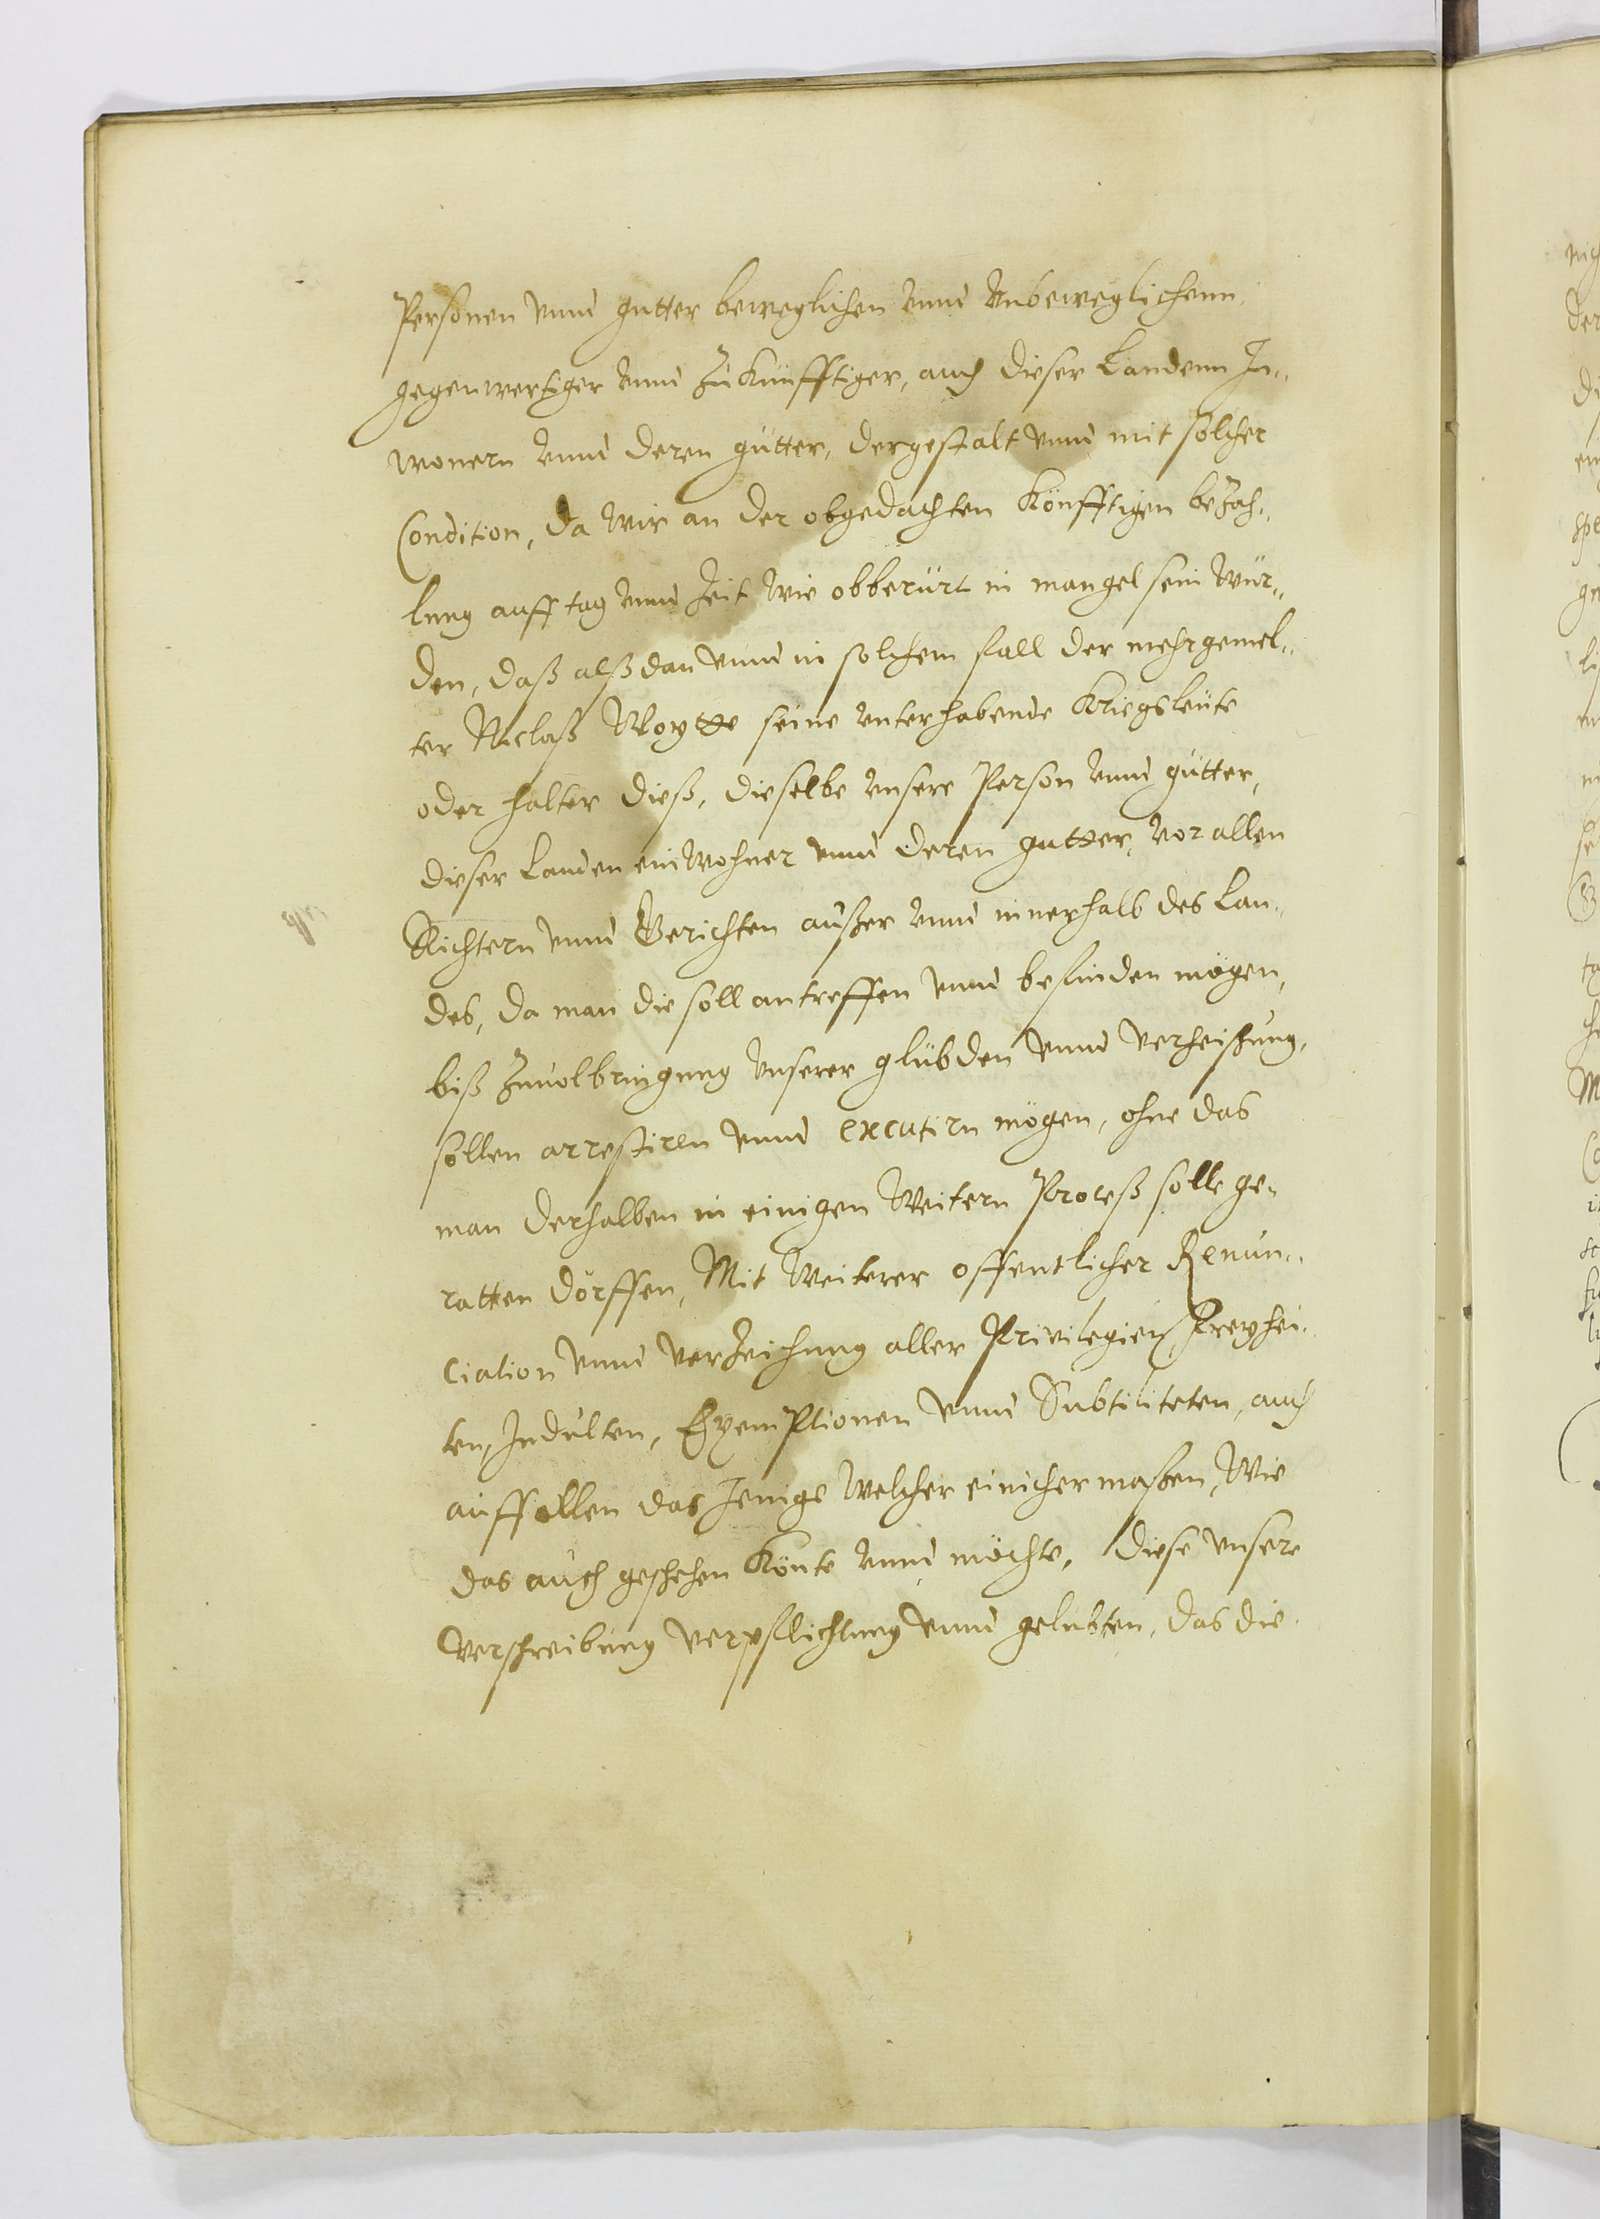 Personen vnnd gutter beweglichen vnnd vnbeweglichenn,
gegenwertiger vnnd zukünfftiger, auch dieser Landenn In¬
wonern vnnd deren gütter, dergestalt vnnd mit solcher
Condition, da wir an der obgedachten könfftigen bezah¬
lung auff tag vnnd Zeit wie obberürt in mangel sein wür¬
den, daß alßdan vnnd in solchem fall der mehrgemel¬
ter Niclaß seine vnterhabende Kriegsleüte
oder halter dieß, dieselbe vnsere Person vnnd gütter,
dieser Landen einwohner vnnd deren gutter, vor allen
Richtern vnnd Gerichten außer vnnd innerhalb des Lan¬
des, da man die soll antreffen vnnd befinden mögen,
biß zuuolbringung vnserer glübden vnnd verheißung,
sollen arrestiren vnnd excutirn mögen, ohne das
man derhalben in einigen weitern Proceß solle ge¬
ratten dörffen, Mit weiterer offentlicher Renun¬
ciation vnnd verzeihung aller Privilegien, freyhei¬
ten, Indulten, Exemptionen vnnd Subtiliteten, auch
auff allen das Jenige welcher einicher maßen, wie
das auch geschehen könte vnnd möchte, diese vnsere
verschreibung verpflichtung vnnd gelubten, das die